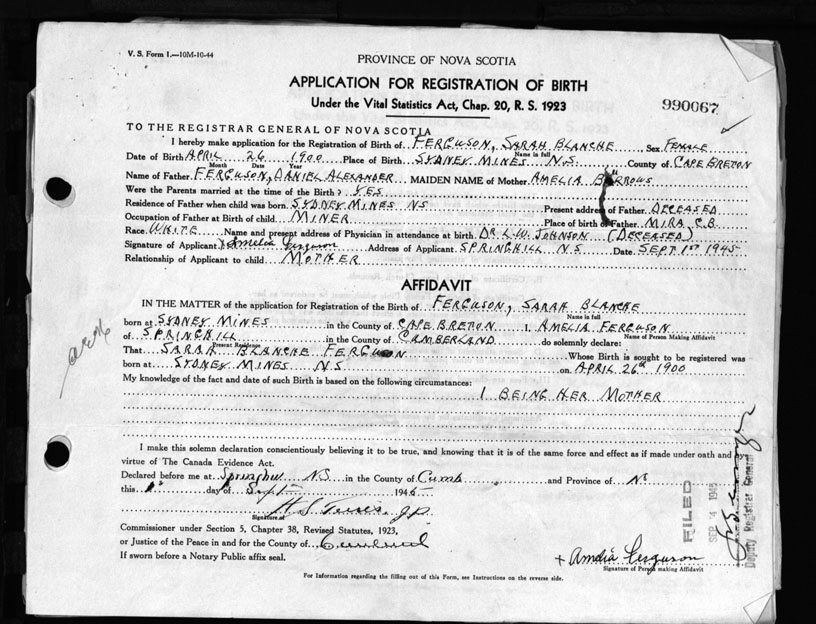 V. S. Form 1.—10M-10-44
PROVINCE OF NOVA SCOTIA
APPLICATION FOR REGISTRATION OF BIRTH
Under the Vital Statistics Act, Chap. 20, R. S. 1923
990067
TO THE REGISTRAR GENERAL OF NOVA SCOTIA
I hereby make application for the Registration of Birth of FERGUSON, SARAH BLANCHE Sex FEMALE
Name in full
Date of Birth APRIL 26 1900 Place of Birth SYDNEY MINES N.S. County of CAPE BRETON
Month Date Year
Name of Father FERGUSON, DANIEL ALEXANDER MAIDEN NAME of Mother AMELIA BURROWS
Were the Parents married at the time of the Birth? YES
Residence of Father when child was born SYDNEY MINES NS Present address of Father DECEASED
Occupation of Father at Birth of child MINER Place of birth of Father MIRA C.B.
Race WHITE Name and present address of Physician in attendance at birth DR L.W. JOHNSON (DECEASED)
Signature of Applicant Amelia Ferguson Address of Applicant SPRINGHILL N.S Date SEPT 1ST 1945
Relationship of Applicant to child MOTHER
AFFIDAVIT
IN THE MATTER of the application for Registration of the Birth of FERGUSON, SARAH BLANCHE
Name in full
born at SYDNEY MINES in the County of CAPE BRETON I, AMELIA FERGUSON
Name of Person Making Affidavit
of SPRINGHILL in the County of CAMBERLAND do solemnly declare:
Present Residence
That SARAH BLANCHE FERGUSON Whose Birth is sought to be registered was
born at SYDNEY MINES NS on APRIL 26th 1900
My knowledge of the fact and date of such Birth is based on the following circumstances:
I BEING HER MOTHER
I make this solemn declaration conscientiously believing it to be true, and knowing that it is of the same force and effect as if made under oath and
virtue of The Canada Evidence Act.
Declared before me at Springhill NS in the County of Cumb and Province of NS
this day of Sept 1945
Signature of
J.P.
Commissioner under Section 5, Chapter 38, Revised Statutes, 1923,
or Justice of the Peace in and for the County of
If sworn before a Notary Public affix seal.
+ Amelia Ferguson
Signature of Person making Affidavit
For Information regarding the filling out of this Form, see Instructions on the reverse side.
FILED
SEP 14 1945
Deputy Registrar General